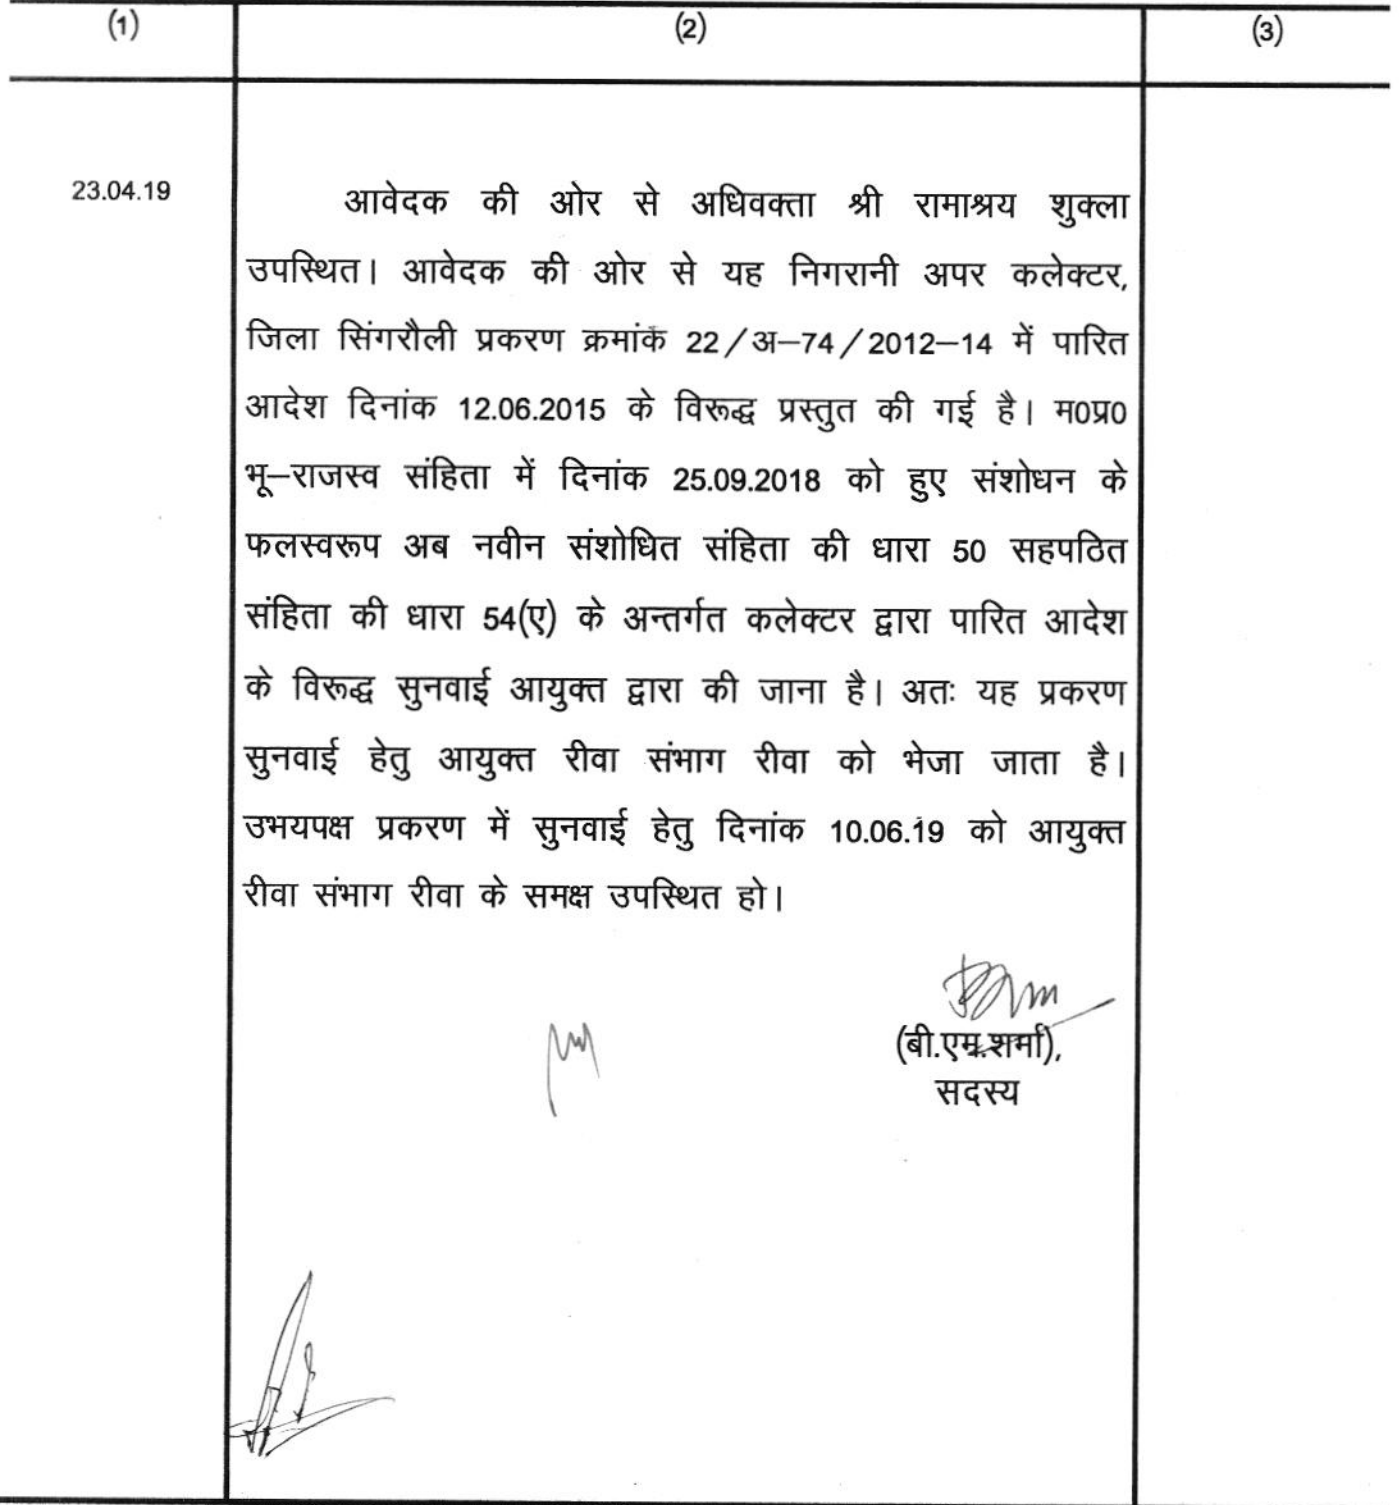 (1) (2) (3)
23.04.19 आवेदक की ओर से अधिवक्ता श्री रामाश्रय शुक्ला
उपस्थित। आवेदक की ओर से यह निगरानी अपर कलेक्टर,
जिला सिंगरौली प्रकरण क्रमांक 22/अ–74/2012–14 में पारित
आदेश दिनांक 12.06.2015 के विरूद्ध प्रस्तुत की गई है। म0प्र0
भू–राजस्व संहिता में दिनांक 25.09.2018 को हुए संशोधन के
फलस्वरूप अब नवीन संशोधित संहिता की धारा 50 सहपठित
संहिता की धारा 54(ए) के अन्तर्गत कलेक्टर द्वारा पारित आदेश
के विरूद्ध सुनवाई आयुक्त द्वारा की जाना है। अतः यह प्रकरण
सुनवाई हेतु आयुक्त रीवा संभाग रीवा को भेजा जाता है।
उभयपक्ष प्रकरण में सुनवाई हेतु दिनांक 10.06.19 को आयुक्त
रीवा संभाग रीवा के समक्ष उपस्थित हो।
(बी.एम.शर्मा),
सदस्य